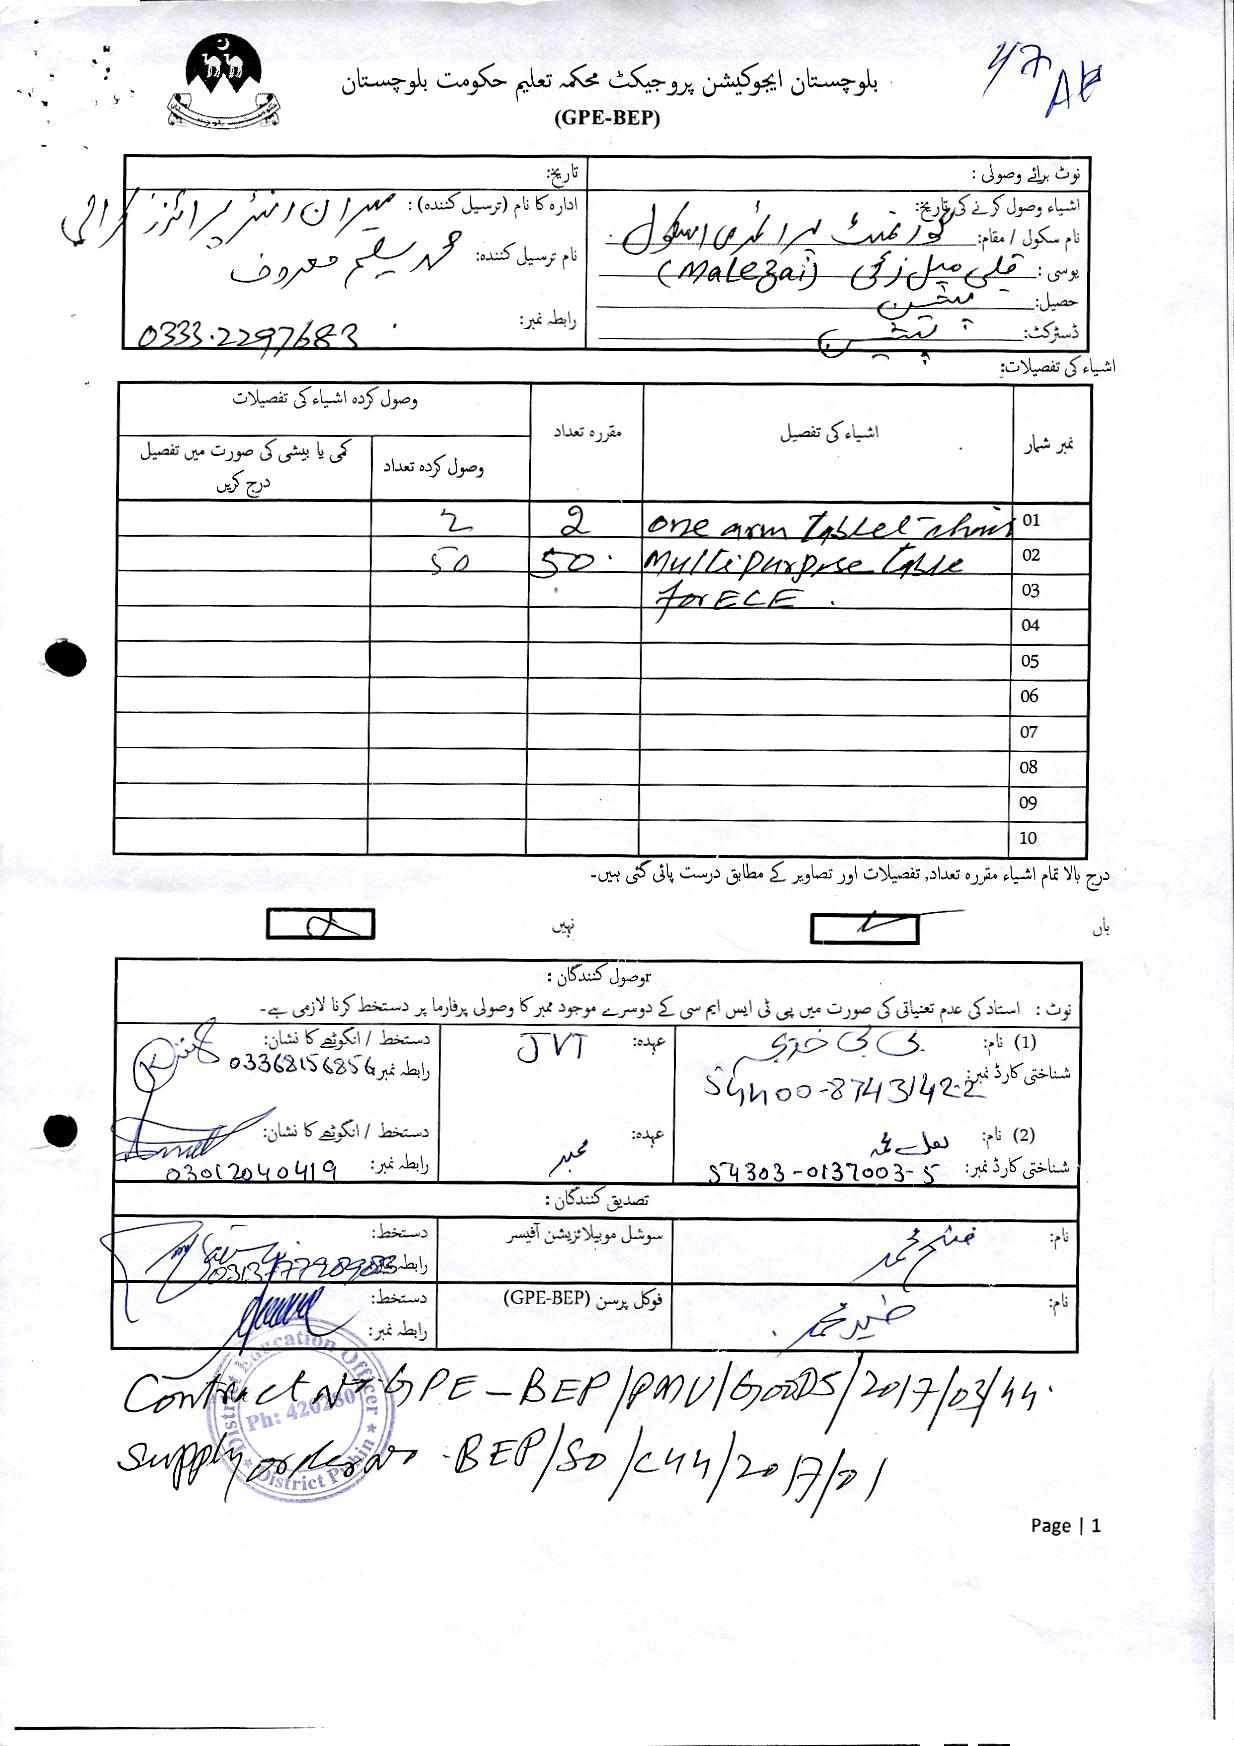 بلوچستان ایجوکیشن پروجیکٹ محکمہ تعلیم حکومت بلوچستان
(GPE-BEP)
47
AB
نوٹ برائے وصولی :
اشیاء وصول کرنے کی تاریخ:
نام سکول / مقام: گورنمنٹ پرائمری اسکول
یوسی : کلی میل زئی (Malezai)
حصیل: پشین
ڈسٹرکٹ: پشین
تاریخ:
ادارہ کا نام (ترسیل کنندہ) : میران انٹر پرائزز کراچی
نام ترسیل کنندہ: محمد سلیم معروف
رابطہ نمبر: 0333.2297683
اشیاء کی تفصیلات:
نمبر شمار
اشیاء کی تفصیل
مقررہ تعداد
وصول کردہ اشیاء کی تفصیلات
وصول کردہ تعداد
کمی یا بیشی کی صورت میں تفصیل درج کریں
01 one arm tablet chair 2 2
02 Multipurpose table 50 50
03 for ECE .
04
05
06
07
08
09
10
درج بالا تمام اشیاء مقررہ تعداد, تفصیلات اور تصاویر کے مطابق درست پائی گئی ہیں۔
ہاں
نہیں
وصول کنندگان :
نوٹ : استاد کی عدم تعنیاتی کی صورت میں پی ٹی ایس ایم سی کے دوسرے موجود ممبر کا وصولی پرفارما پر دستخط کرنا لازمی ہے۔
(1) نام: بی بی
عہدہ: JVT
دستخط / انگوٹھے کا نشان:
شناختی کارڈ نمبر: 54400-8743142-2
رابطہ نمبر 03368156856
(2) نام: محمد
عہدہ: ممبر
دستخط / انگوٹھے کا نشان:
شناختی کارڈ نمبر: 54303-0137003-5
رابطہ نمبر: 03012040419
تصدیق کنندگان :
نام: فتح محمد
سوشل موبیلائزیشن آفیسر
دستخط:
رابطہ
نام: محمد
فوکل پرسن (GPE-BEP)
دستخط:
رابطہ نمبر:
District Education Officer
Ph: 420280
District Pishin
Contract No GPE-BEP/PMU/GOODS/2017/03/44.
Supply order no BEP/SO/C44/2017/01
Page | 1